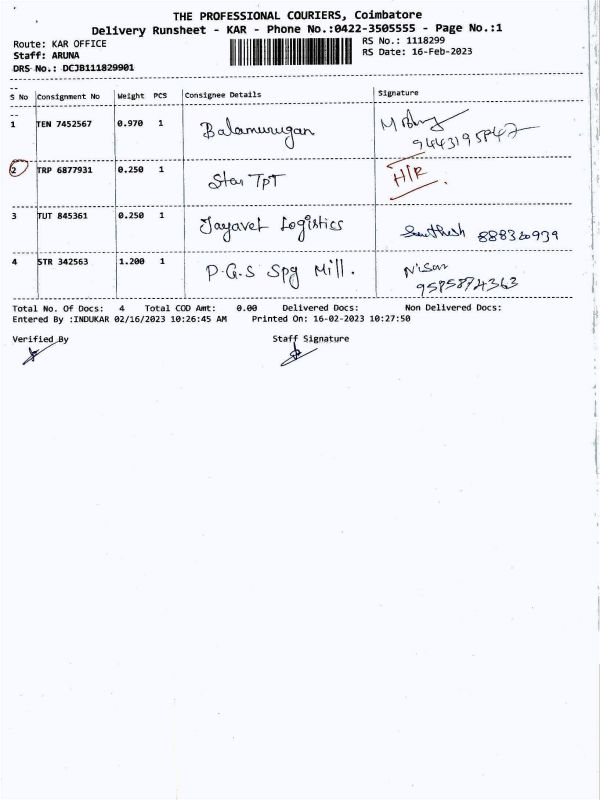 THE PROFESSIONAL COURIERS, Coimbatore
Delivery Runsheet - KAR - Phone No.:0422-3505555 - Page No.:1
Route: KAR OFFICE RS No.: 1118299
Staff: ARUNA RS Date: 16-Feb-2023
DRS No.: DCJB111829901
--
S No Consignment No Weight PCS Consignee Details Signature
--
1 TEN 7452567 0.970 1 Balamurugan
2 TRP 6877931 0.250 1 Star TPT H/R
3 TUT 845361 0.250 1 Jayavel Logistics 888320939
4 STR 342563 1.200 1 P.G.S Spg Mill.
Total No. Of Docs: 4 Total COD Amt: 0.00 Delivered Docs: Non Delivered Docs:
Entered By :INDUKAR 02/16/2023 10:26:45 AM Printed On: 16-02-2023 10:27:50
Verified By Staff Signature